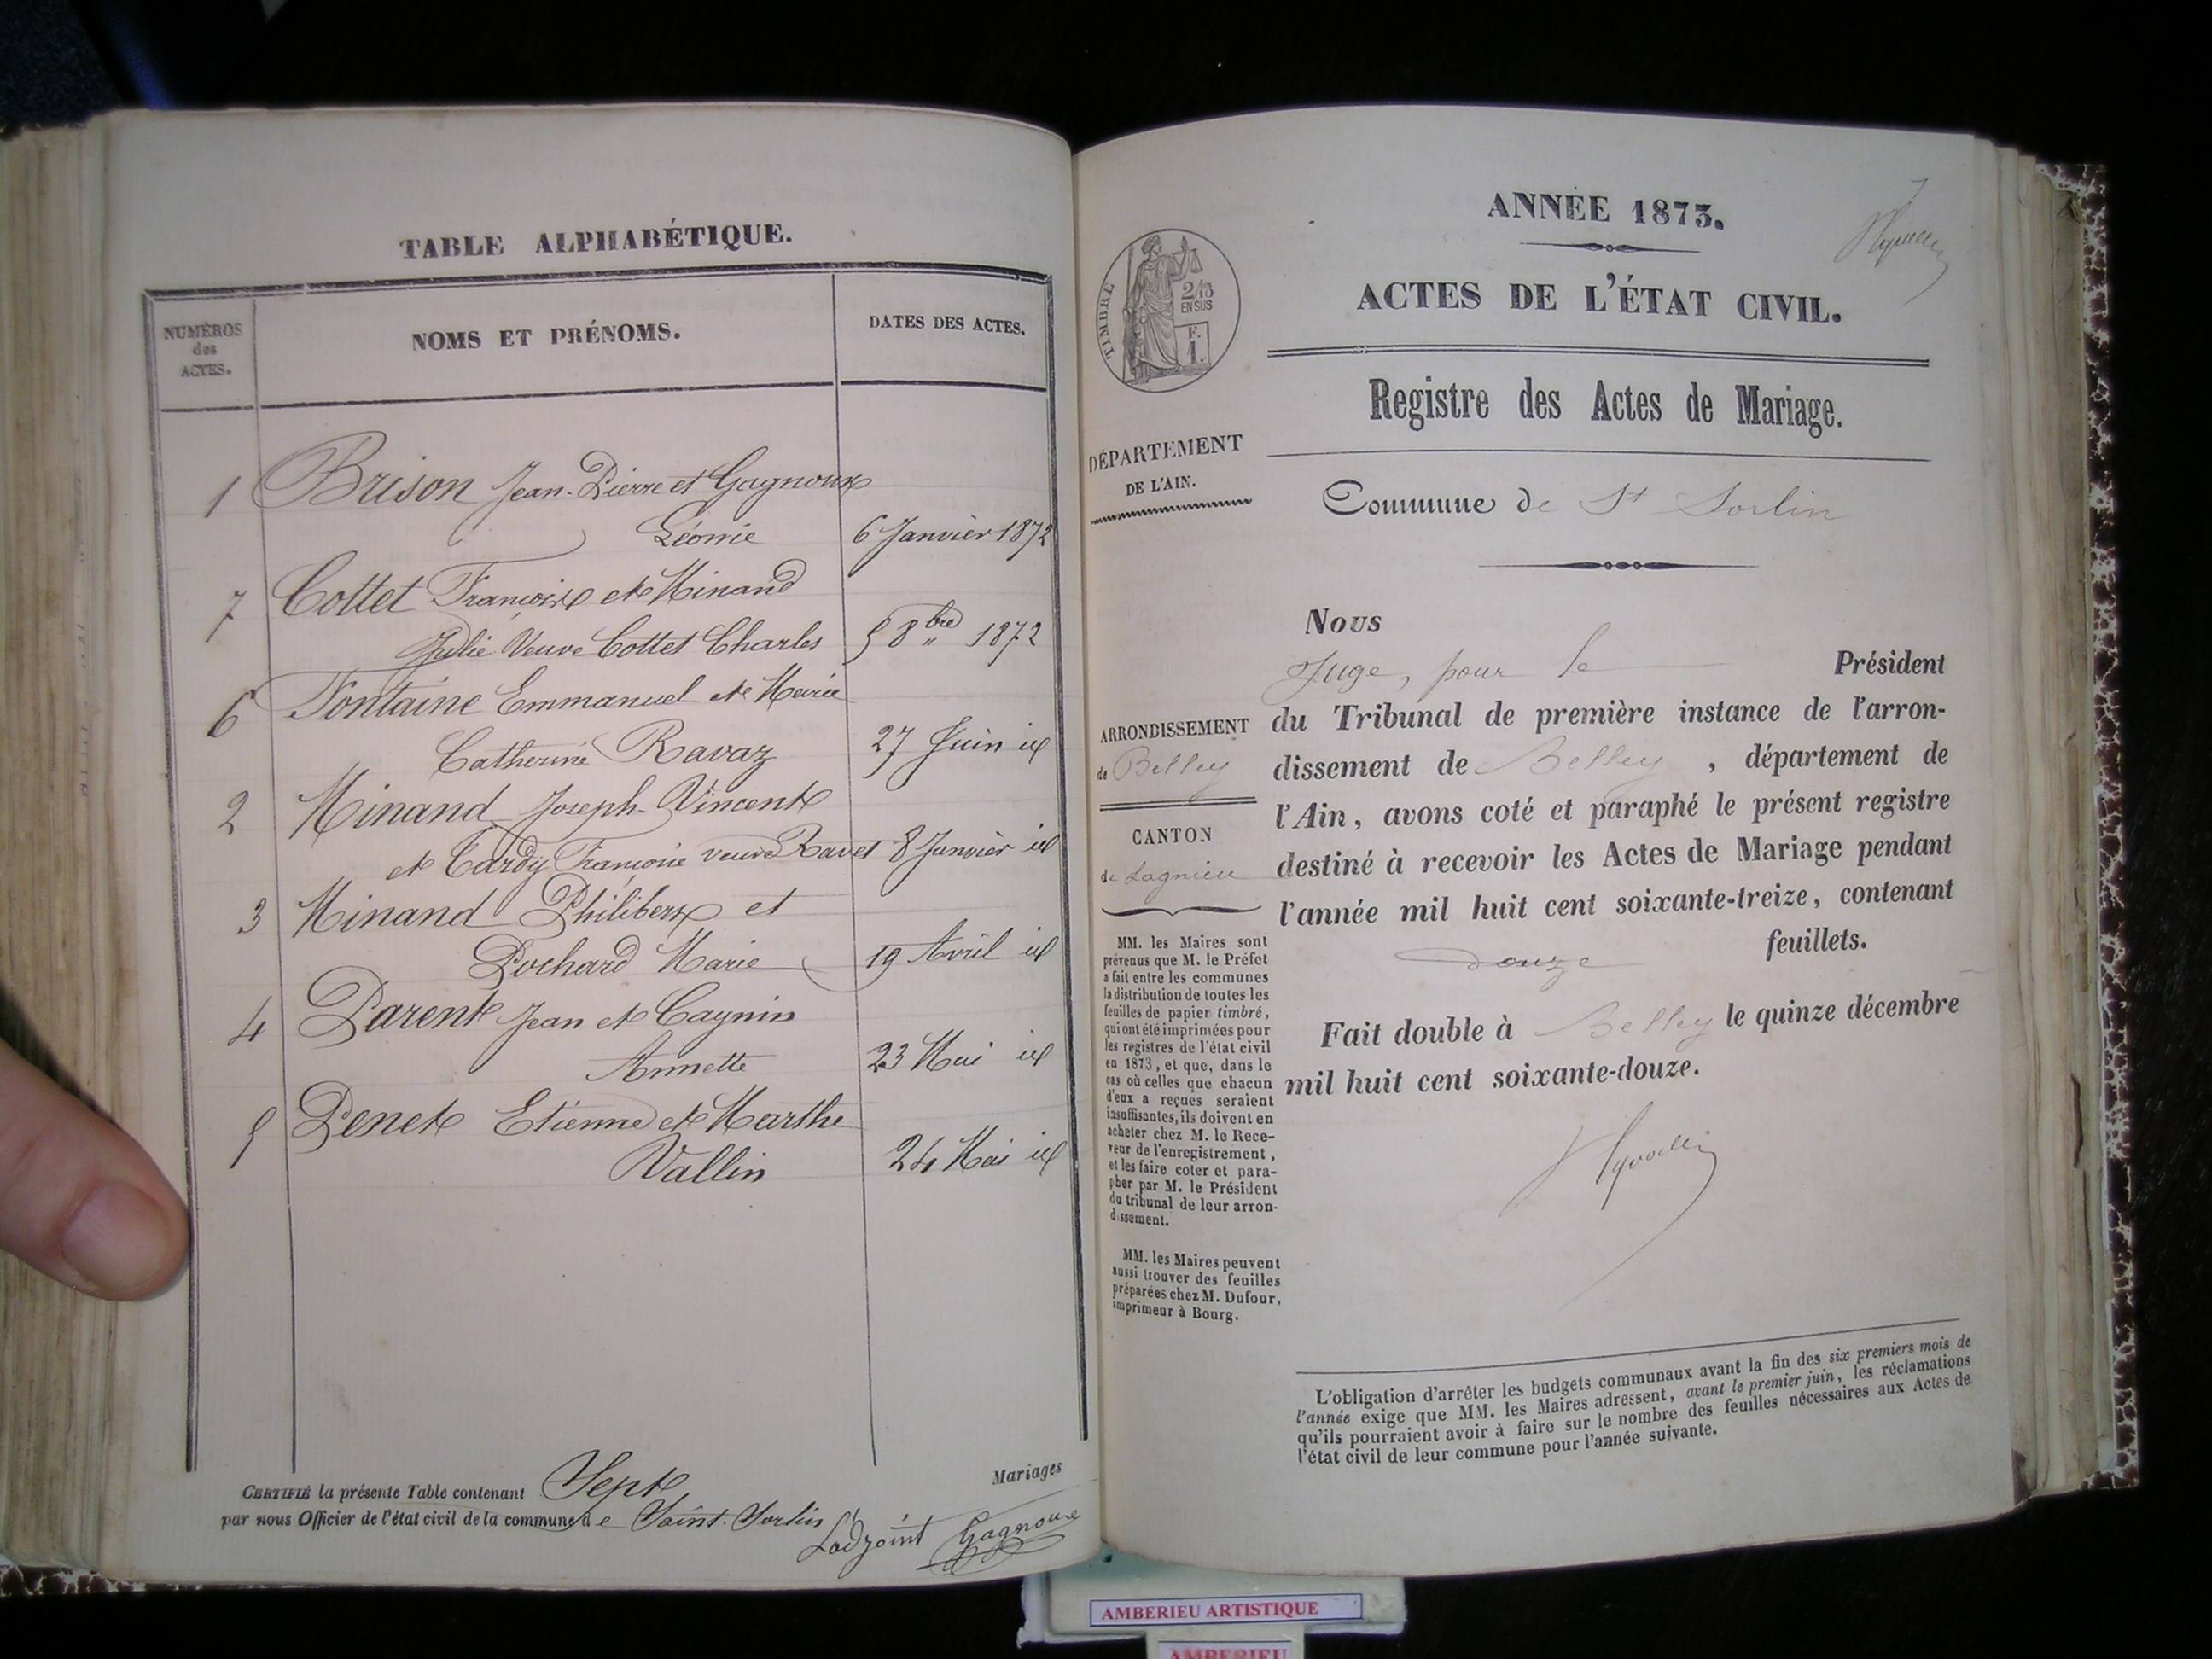 TABLE ALPHABÉTIQUE.
NUMÉROS
des
ACTES.
NOMS ET PRÉNOMS.
DATES DES ACTES.
1 Brison Jean-Pierre et Gagnoux
Léonie 6 Janvier 1872
7 Cottet François et Minand
Julie Veuve Cottet Charles 5 8bre 1872
6 Fontaine Emmanuel et Marie
Catherine Ravaz 27 Juin id
2 Minand Joseph-Vincent
et Tardy Françoise veuve Ravet 8 Janvier id
3 Minand Philibert et
Pochard Marie 19 Avril id
4 Parent Jean et Cagnin
Annette 23 Mai id
5 Penet Etienne et Marthe
Vallin 24 Mai id
CERTIFIÉ la présente Table contenant Sept Mariages
par nous Officier de l'état civil de la commune de Saint-Sorlin
L'adjoint Gagnoux
ANNÉE 1873.
ACTES DE L'ÉTAT CIVIL.
TIMBRE
2/10
EN SUS
F.
1.
Registre des Actes de Mariage.
DÉPARTEMENT
DE L'AIN.
Commune de St Sorlin
ARRONDISSEMENT
de Belley
CANTON
de Lagnieu
MM. les Maires sont
prévenus que M. le Préfet
a fait entre les communes
la distribution de toutes les
feuilles de papier timbré,
qui ont été imprimées pour
les registres de l'état civil
en 1873, et que, dans le
cas où celles que chacun
d'eux a reçues seraient
insuffisantes, ils doivent en
acheter chez M. le Rece-
veur de l'enregistrement,
et les faire coter et para-
pher par M. le Président
du tribunal de leur arron-
dissement.
MM. les Maires peuvent
aussi trouver des feuilles
préparées chez M. Dufour,
imprimeur à Bourg.
Nous
Juge, pour le Président
du Tribunal de première instance de l'arron-
dissement de Belley, département de
l'Ain, avons coté et paraphé le présent registre
destiné à recevoir les Actes de Mariage pendant
l'année mil huit cent soixante-treize, contenant
douze feuillets.
Fait double à Belley le quinze décembre
mil huit cent soixante-douze.
L'obligation d'arrêter les budgets communaux avant la fin des six premiers mois de
l'année exige que MM. les Maires adressent, avant le premier juin, les réclamations
qu'ils pourraient avoir à faire sur le nombre des feuilles nécessaires aux Actes de
l'état civil de leur commune pour l'année suivante.
AMBERIEU ARTISTIQUE
AMBERIEU